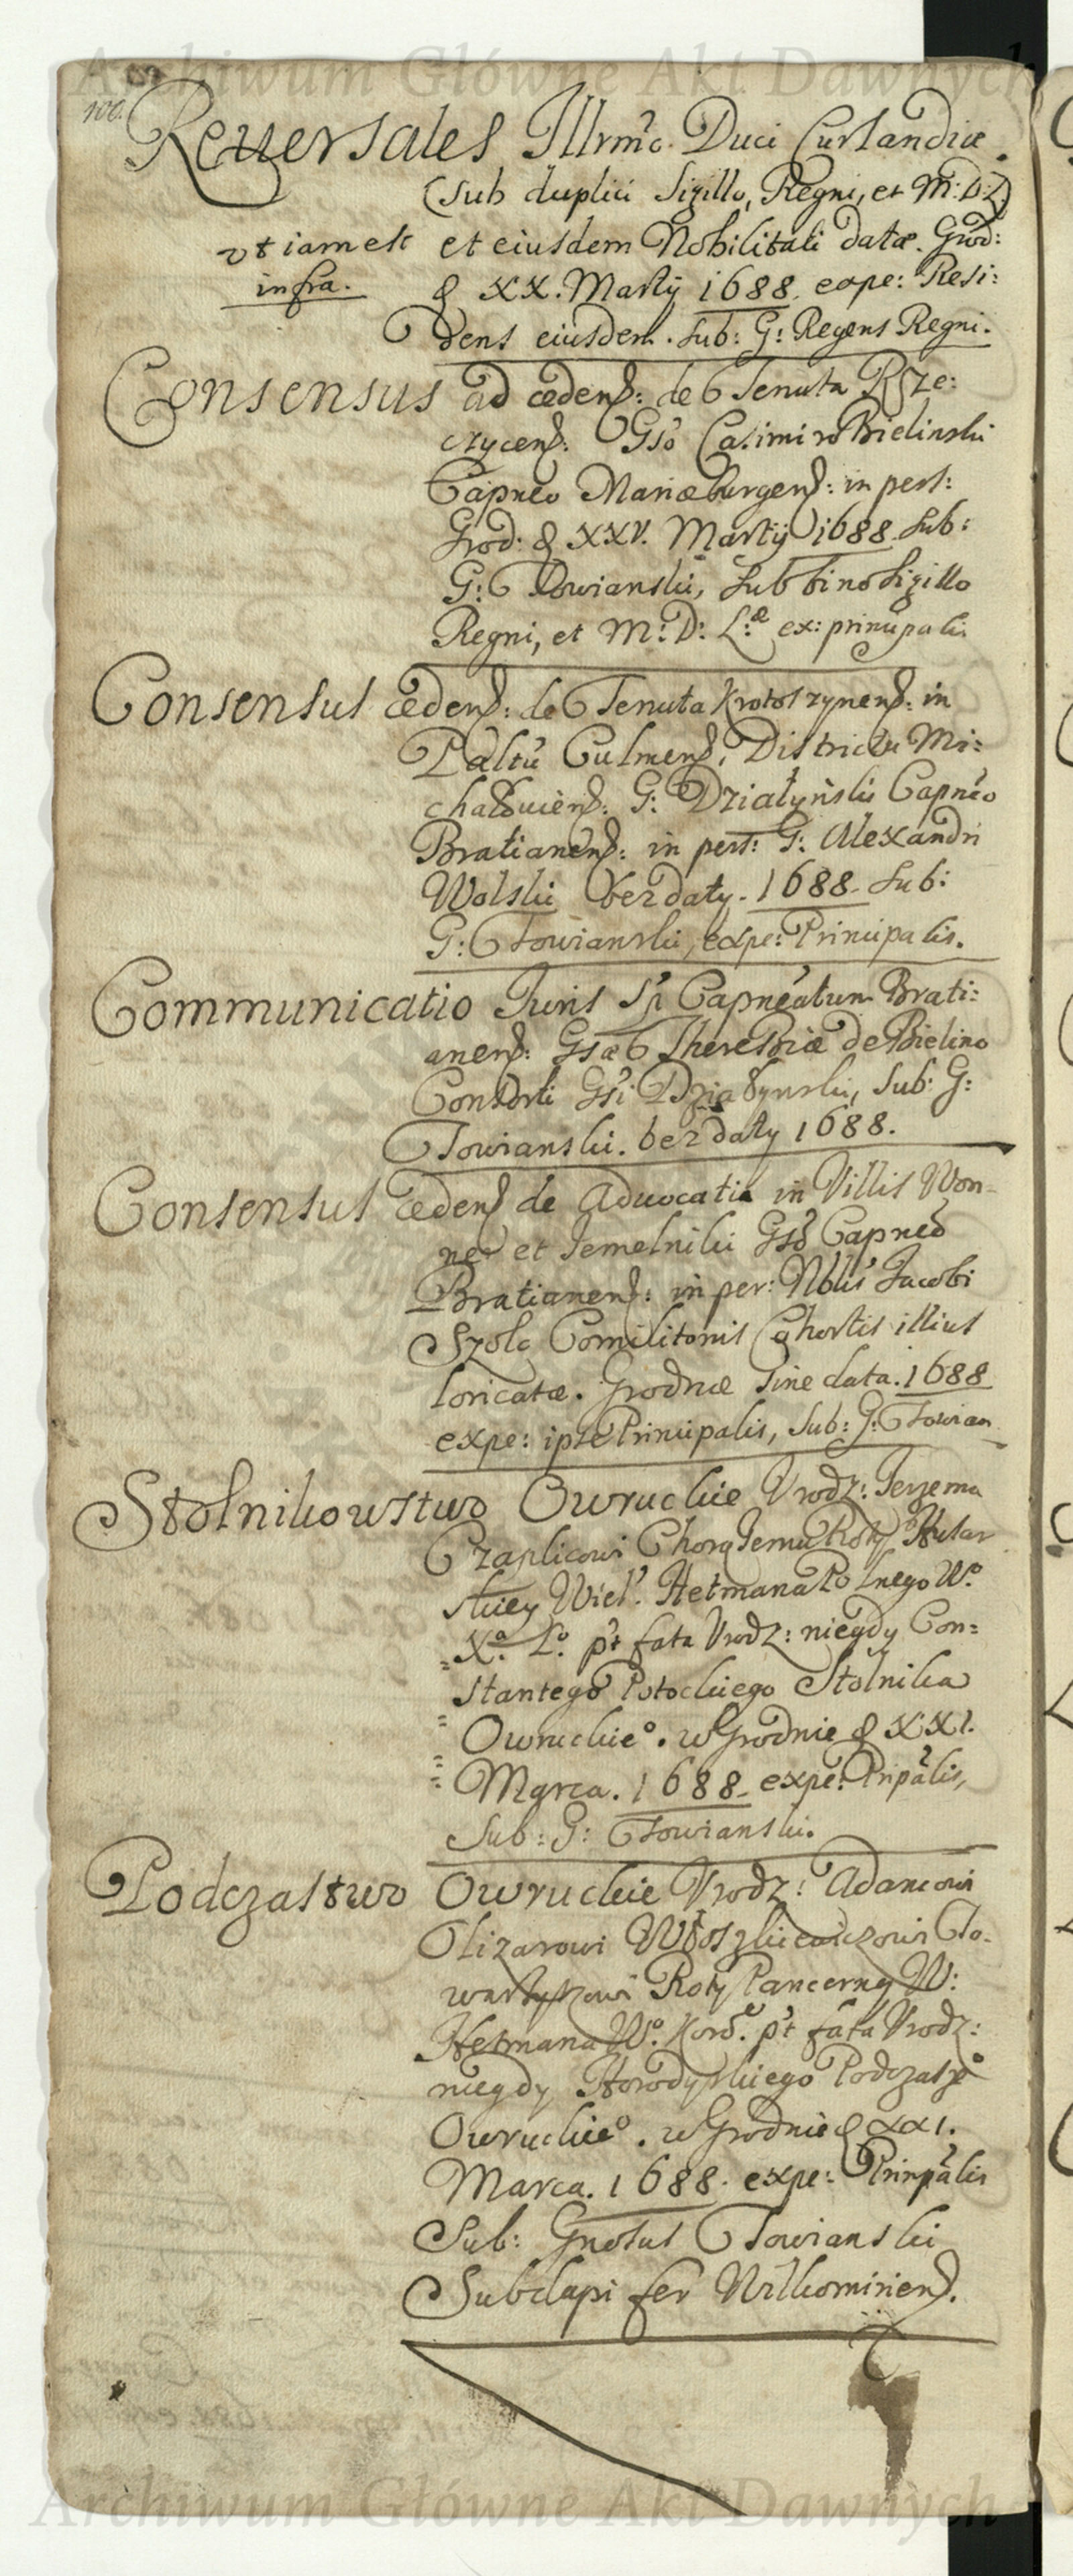 Archiwum Główne Akt Dawnych
100.
Reuersales Illrmo. Duci Curlandiæ.
(sub duplici Sigillo, Regni, et M: D: L)
ut iam est et eiusdem Nobilitati datæ. Grod:
infra. d XX. Martij 1688. expe: Resi:
dens eiusdem. sub: G: Regens Regni.
Consensus ad cedend: de Tenuta Rze:
czycens: Gso Casimiro Bielinski
Capneo Mariæburgens: in pers:
Grod: d XXV. Martij 1688. sub:
G: Towianski, sub bino Sigillo
Regni, et M: D: L:æ ex: principalis
Consensus cedend: de Tenuta Krotoszynens: in
Paltu Culmens, Districtu Mi:
chałouiens: G: Działyński Capneo
Bratianens: in pers: G: Alexandri
Wolski bez daty. 1688. sub:
G: Towianski, expe: Principalis.
Communicatio Juris Sr Capneatum Brati:
anens: Gsæ Theressiæ de Bielino
Consorti Gsi Działynski, sub: G:
Towianski. bez daty 1688.
Consensus cedend de Aduocatia in Villis Won-
ne et Jemelniki Gso Capneo
Bratianens: in per: Nblis Jacobi
Szolc Comilitonis Cohortis illius
loricatæ. Grodnæ sine data. 1688
expe: ipse Principalis, sub: G: Towian
Stolnikowstwo Owruckie Vrodz: Jerzemu
Czaplicowi Chorążemu Roty Husar
skiey Wiel. Hetmana Polnego Wo.
Xa. Lo. pt fata Vrodz: niegdy Con=
stantego Potockiego Stolnika
Owruckieo. w Grodnie d XXI.
Marca. 1688. expe: Pripalis,
Sub: G: Towianski.
Podczastwo Owruckie Vrodz: Adamowi
Olizarowi Wołszkiewiczowi To-
warzyszowi Roty Pancerney W:
Hetmana Wo. Koro. pt fata Vrodz:
niegdy Horodyskiego Podczaszo
Owruckieo. w Grodnie d XXI.
Marca. 1688. expe: Prinpalis
Sub: Gnosus Towianski
Subdapi fer Wilkomiriens.
Archiwum Główne Akt Dawnych